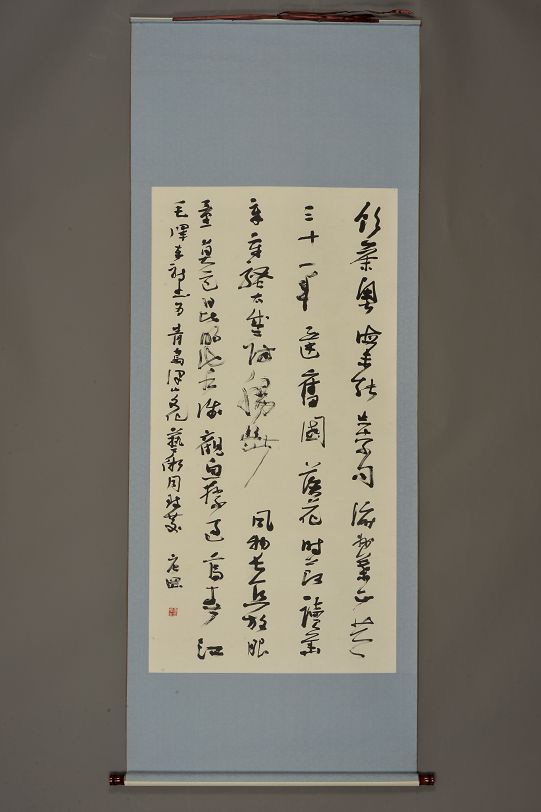 飲茶粵海未能忘索句渝州葉正黃
三十一年還舊國落花時節讀華
章牢騷太盛防腸斷風物長宜放眼
量莫道昆明池水淺觀魚勝過富春江
毛澤東詩 青島 山文化藝術周